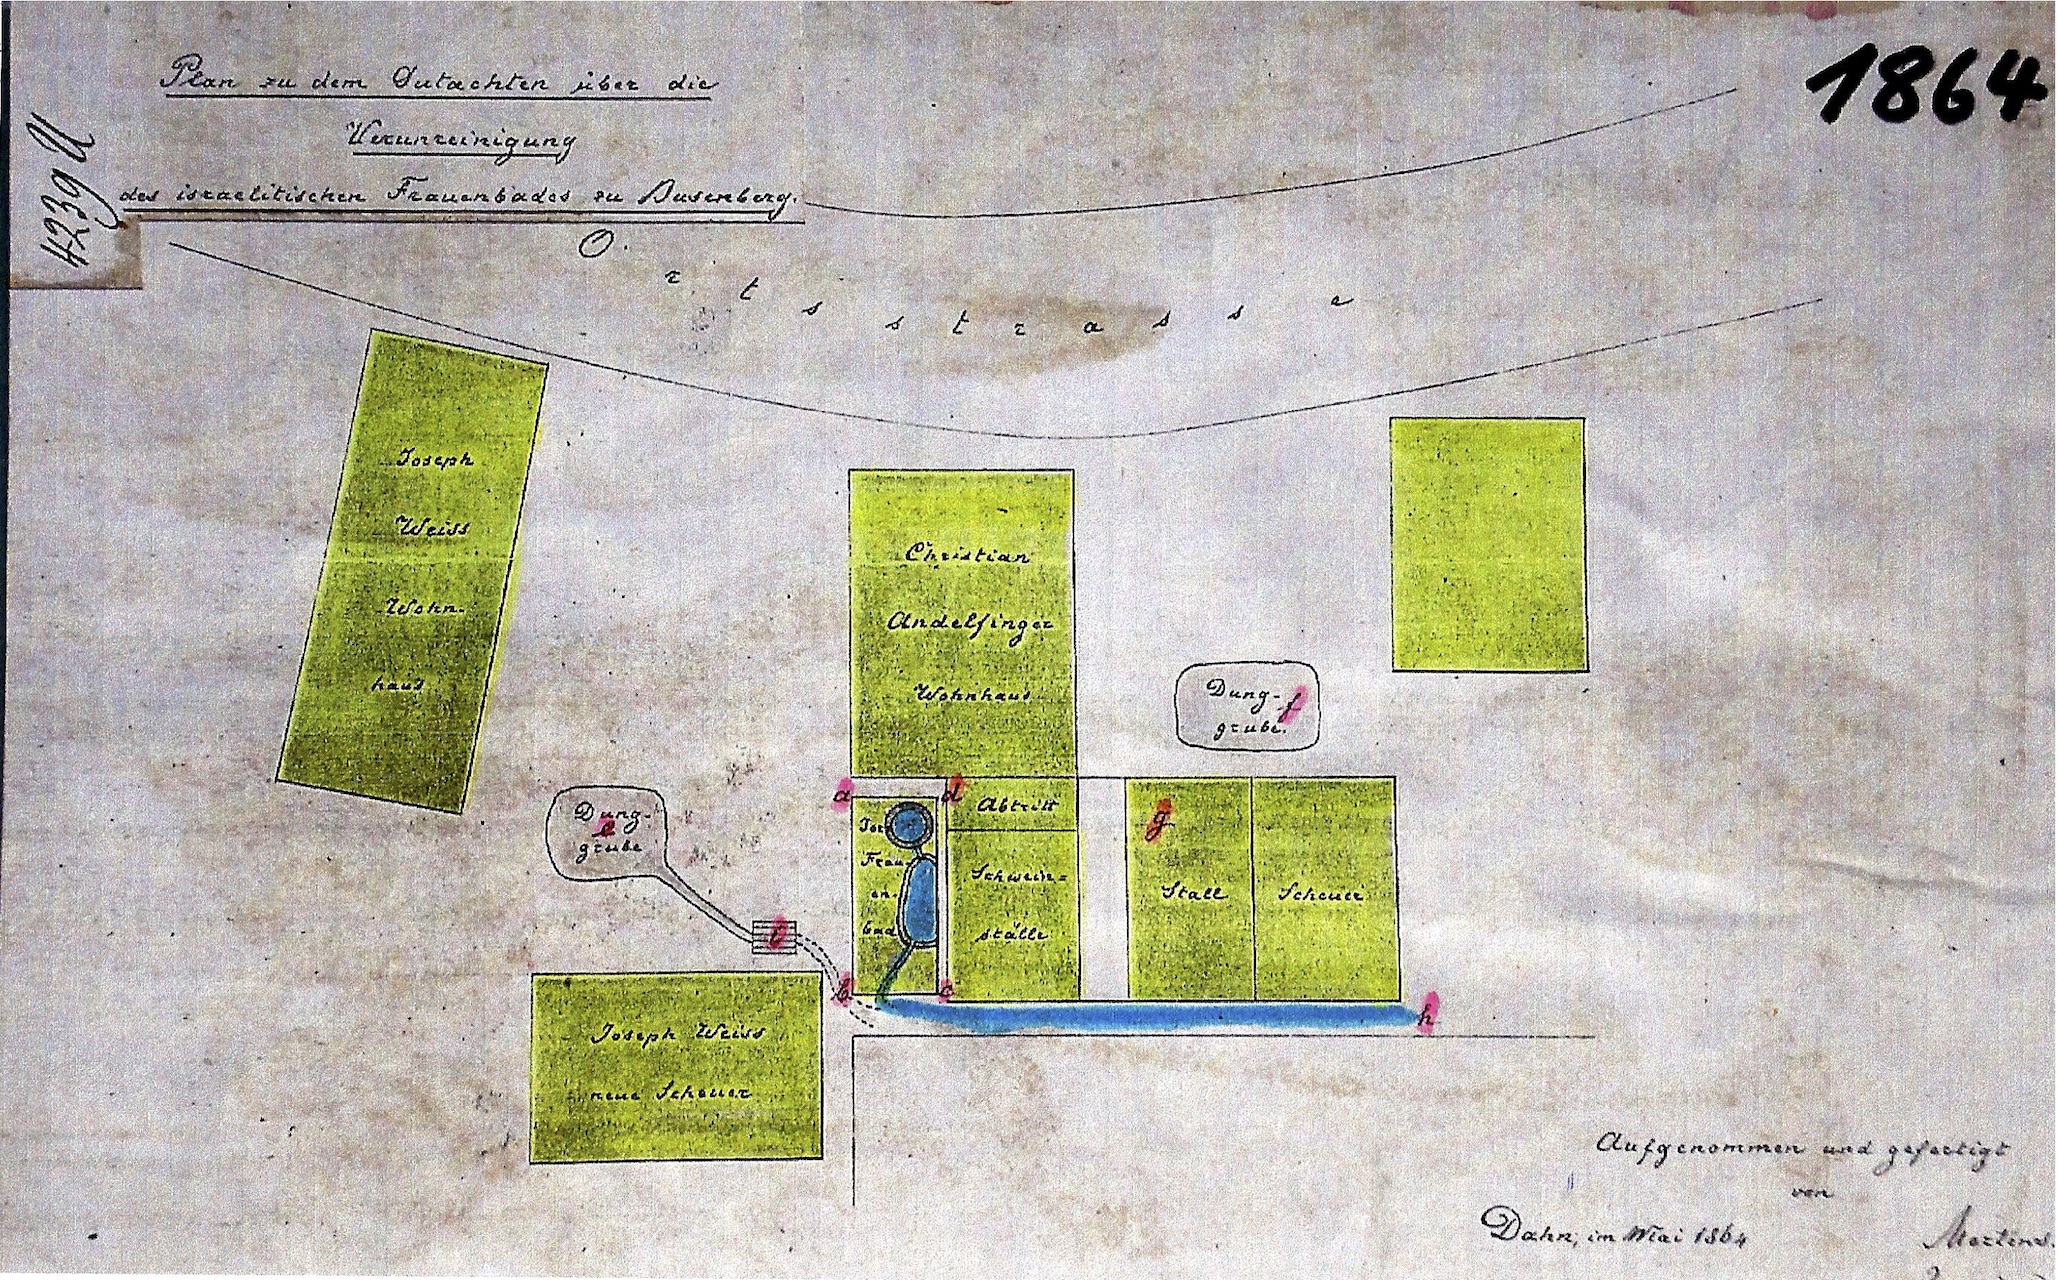 1864
Plan zu dem Gutachten über die
Verunreinigung
des israelitischen Frauenbades zu Busenberg.
4239 U
Ortsstrasse
Joseph
Weiss
Wohn-
haus
Christian
Andelfinger
Wohnhaus
Dung- f
grube.
a
d
Abtritt
Isr.
Frau-
en-
bad
Schwein=
ställe
g
Stall
Scheuer
Dung-
e
grube
b
c
h
Joseph Weiss
neue Scheuer
Aufgenommen und gefertigt
von
Dahn, im Mai 1864